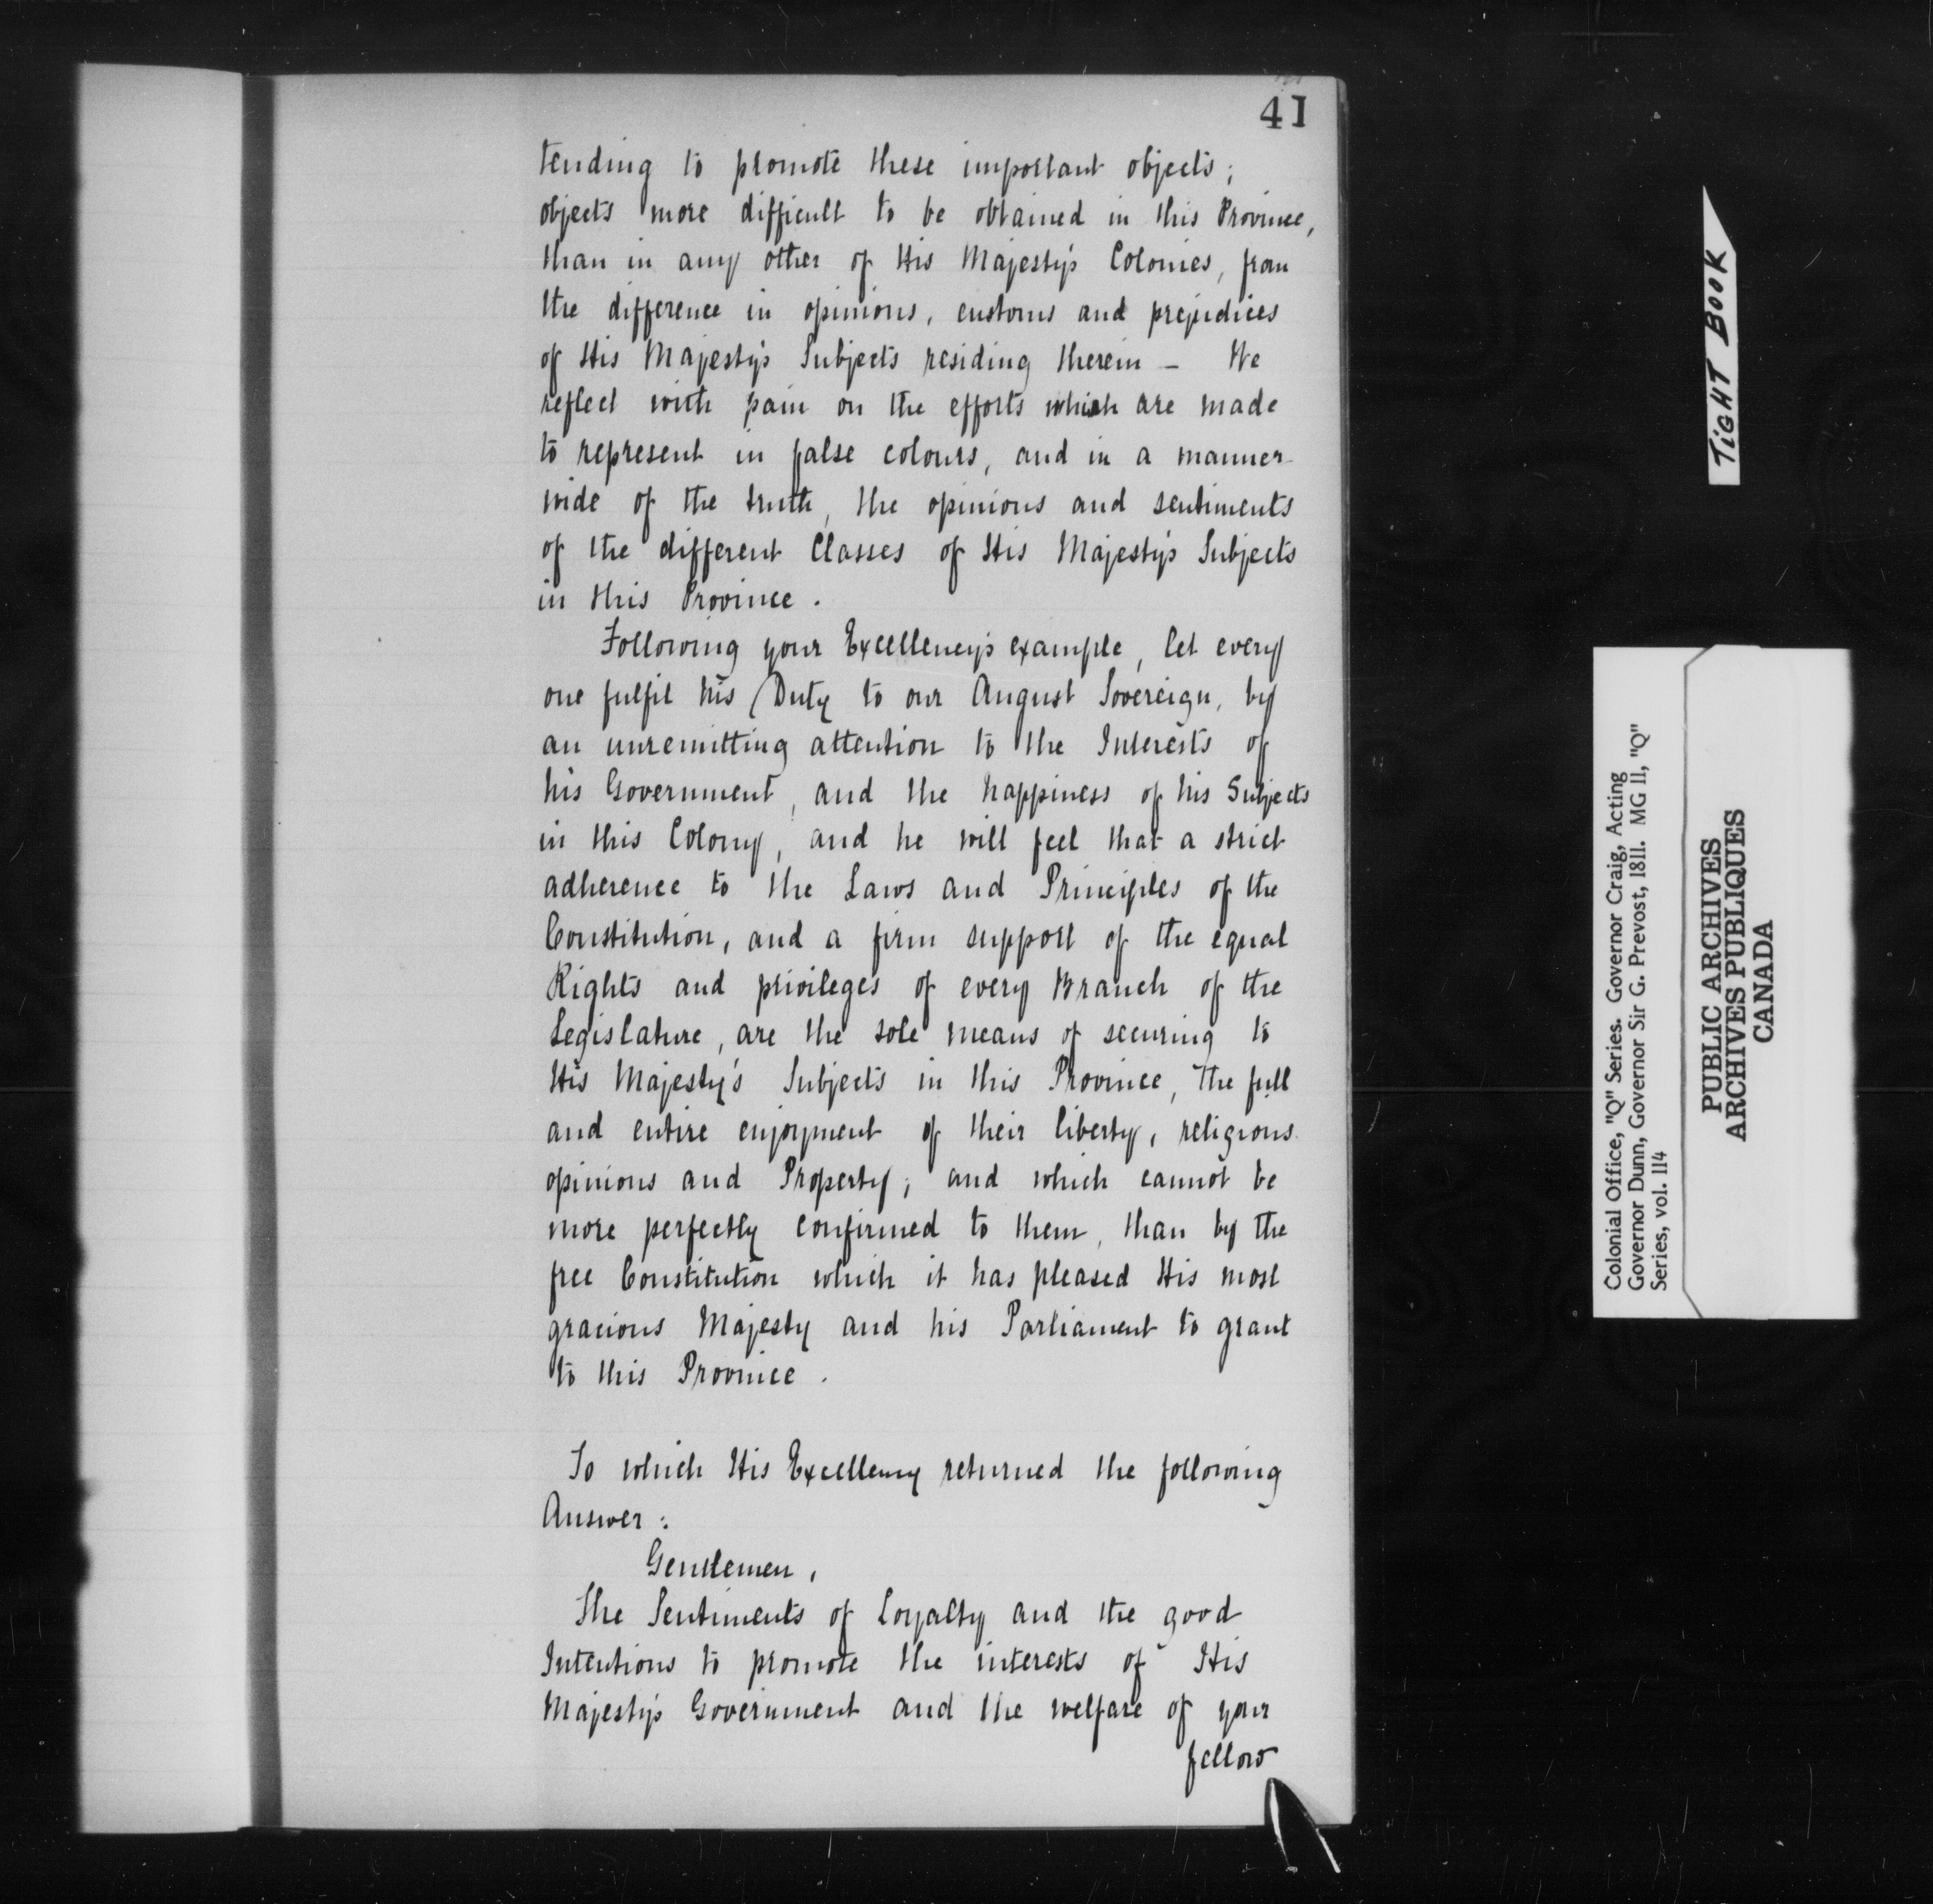 41
tending to promote these important objects;
objects more difficult to be obtained in this Province,
than in any other of His Majesty's Colonies, from
the difference in opinions, customs and prejudices
of His Majesty's Subjects residing therein – We
reflect with pain on the efforts which are made
to represent in false colours, and in a manner
wide of the truth, the opinions and sentiments
of the different Classes of His Majesty's Subjects
in this Province.
Following your Excellency's example, let every
one fulfil his Duty to our August Sovereign, by
an unremitting attention to the Interests of
his Government, and the happiness of his Subjects
in this Colony, and he will feel that a strict
adherence to the Laws and Principles of the
Constitution, and a firm support of the equal
Rights and privileges of every Branch of the
Legislature, are the sole means of securing to
His Majesty's Subjects in this Province, the full
and entire enjoyment of their liberty, religious
opinions and Property; and which cannot be
more perfectly confirmed to them, than by the
free Constitution which it has pleased His most
gracious Majesty and his Parliament to grant
to this Province.
To which His Excellency returned the following
Answer:
Gentlemen,
The Sentiments of Loyalty and the good
Intentions to promote the interests of His
Majesty's Government and the welfare of your
fellow
TIGHT BOOK
Colonial Office, "Q" Series. Governor Craig, Acting
Governor Dunn, Governor Sir G. Prevost, 1811. MG 11, "Q"
Series, vol. 114
PUBLIC ARCHIVES
ARCHIVES PUBLIQUES
CANADA